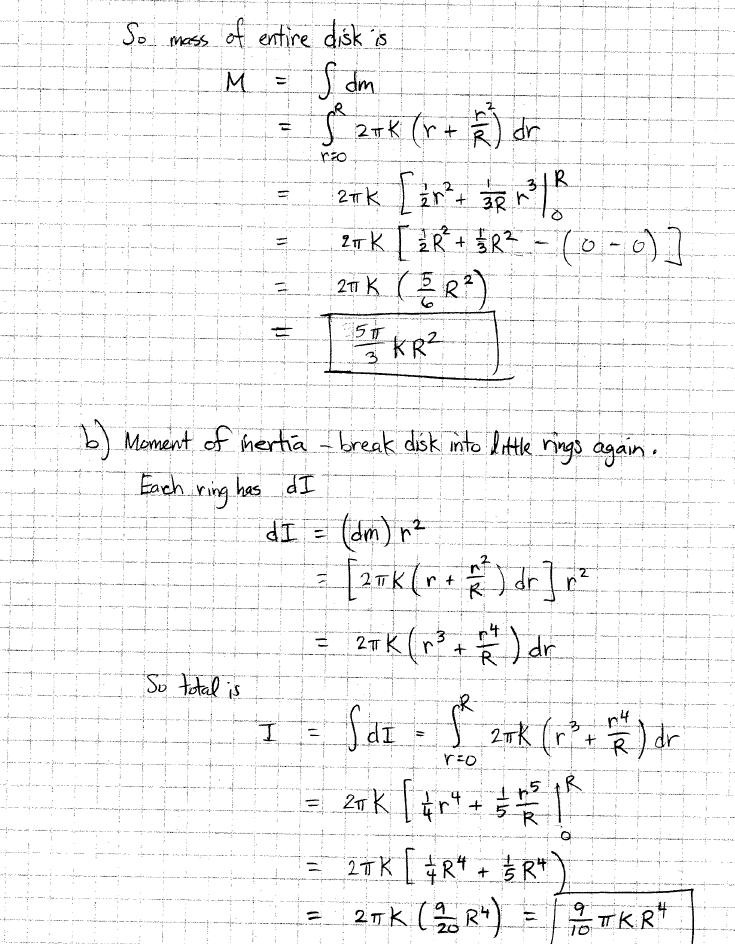 So mass of entire disk is
M = ∫ dm
= ∫_{r=0}^{R} 2πK (r + r²/R) dr
= 2πK [ 1/2 r² + 1/3R r³ |_0^R
= 2πK [ 1/2 R² + 1/3 R² - (0 - 0) ]
= 2πK ( 5/6 R² )
= 5π/3 KR²
b) Moment of inertia - break disk into little rings again.
Each ring has dI
dI = (dm) r²
= [ 2πK ( r + r²/R ) dr ] r²
= 2πK ( r³ + r⁴/R ) dr
So total is
I = ∫ dI = ∫_{r=0}^{R} 2πK ( r³ + r⁴/R ) dr
= 2πK [ 1/4 r⁴ + 1/5 r⁵/R |_0^R
= 2πK [ 1/4 R⁴ + 1/5 R⁴ )
= 2πK ( 9/20 R⁴ ) = 9/10 πKR⁴